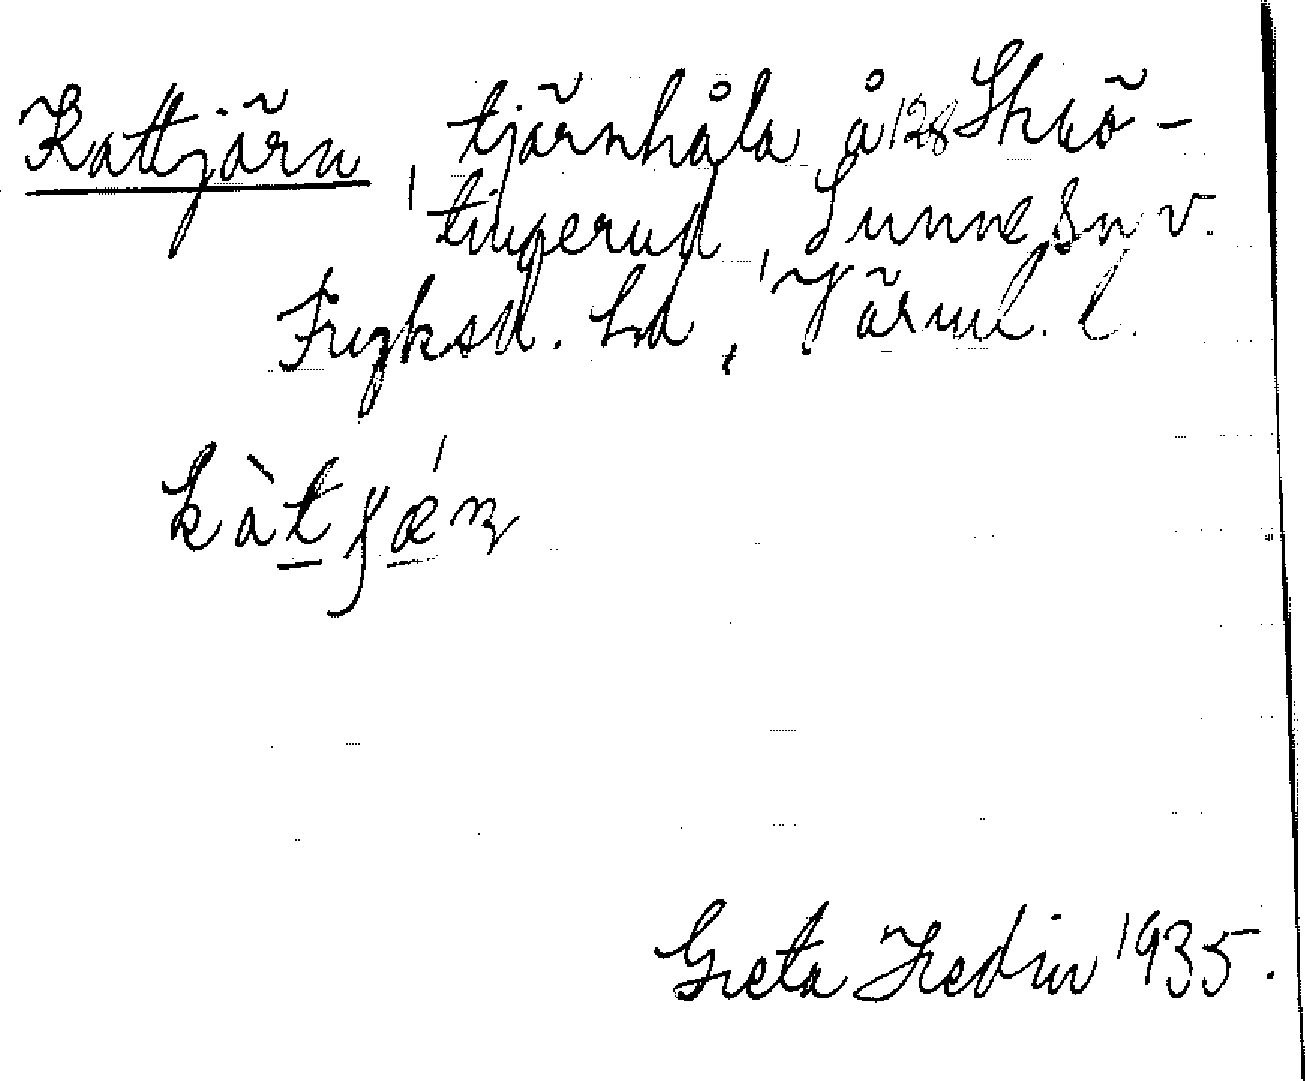 Kattjärn, tjärnhåla å 128 Skäs-
tingerud, Sunne sn, v.
Fryksd. hd, Värml. l.
kàtjǽn
Greta Hedin 1935.